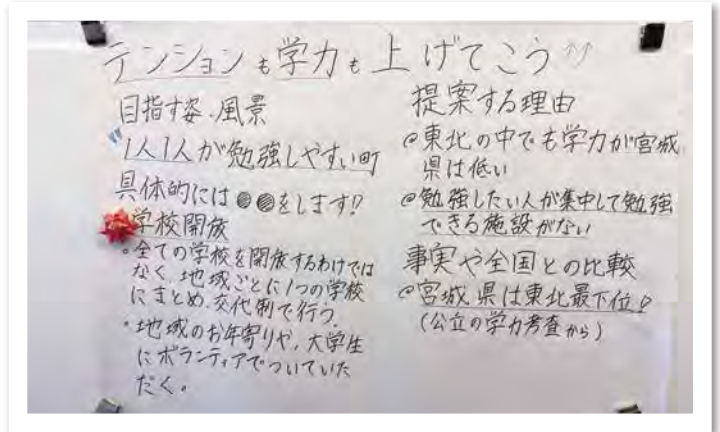 テンションも学力も上げてこう⤴⤴
目指す姿・風景
"1人1人が勉強しやすい町
具体的には●●をします!?
学校開放
・全ての学校を開放するわけでは
なく、地域ごとに1つの学校
にまとめ、交代制で行う。
・地域のお年寄りや、大学生
にボランティアでついていた
だく。
提案する理由
@東北の中でも学力が宮城
県は低い
@勉強したい人が集中して勉強
できる施設がない
事実や全国との比較
@宮城県は東北最下位!!
(公立の学力考査から)